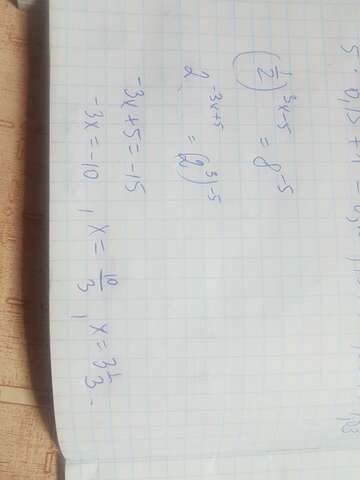 (1/2)^(3x-5) = 8^(-5)
2^(-3x+5) = (2^3)^(-5)
-3x+5 = -15
-3x = -10, x = 10/3, x = 3 1/3.